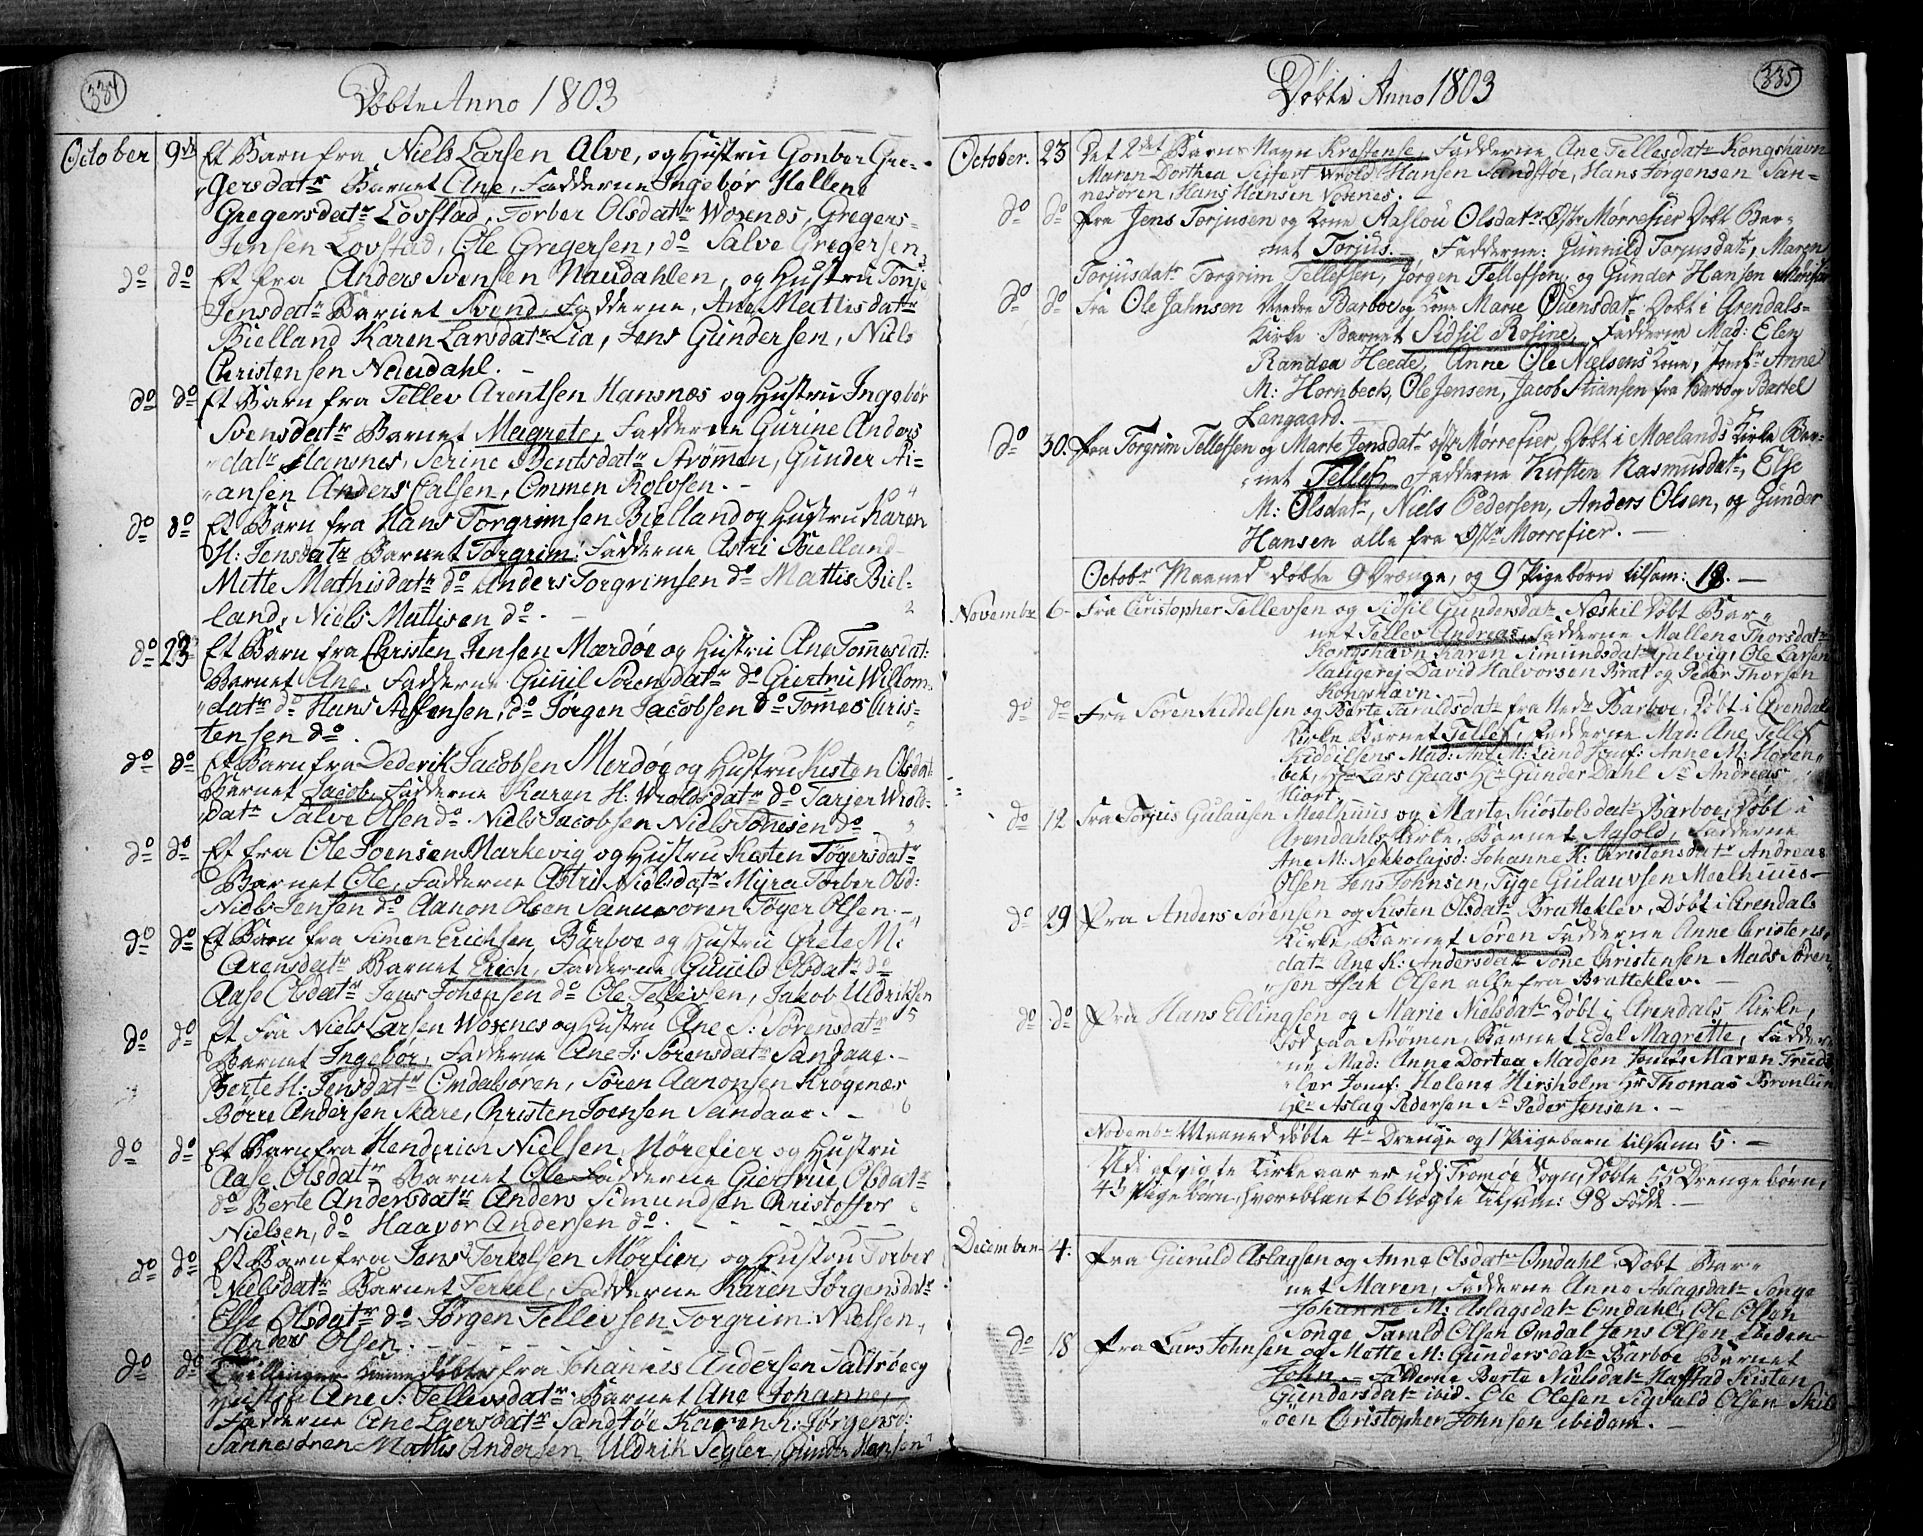 334
Døbte Anno 1803
October 9de Et Barn fra Niels Larsen Alve, og Hustru Gonber Gre-
gersdatr Barnet Ane, Fadderne Ingebør Hellene
Gregersdatr Lovstad, Torber Olsdatr Woxenes, Gregers
Jensen Lovstad, Ole Gregersen, do Salve Gregersen
do do Et fra Anders Svensen Naudahlen, og Hustru Tonje
Jensdatr Barnet Svend, Fadderne, Ane Mattisdatr
Bielland Karen Larsdatr Lia, Jens Gundersen, Niels
Christensen Neudahl.
do do Et Barn fra Tellev Arentsen Hansnes og Hustru Ingebør
Svensdatr Barnet Magrete, Fadderne Gurine Anders
datr Hansnes, Serine Bentsdatr Strømen, Gunder
ansen Anders Calsen, Ommen Rolvsen.
do do Et Barn fra Hans Torgrimsen Bielland og Hustru Karen
H: Jensdatr Barnet Torgrim, Fadderne Astri Bielland
Mitte Mathisdatr do Anders Torgrimsen do Mattis Biel-
land, Niels Mattisen do.
do 23 Et Barn fra Christen Jensen Mærdøe og Hustru Ane Tommesdat:
Barnet Ane, Fadderne Gunil Sørensdatr do Giertru Willom
datr do Hans Steffensen, do Jørgen Jacobsen do Tommes Cris-
tensen do.
do do Et Barn fra Dederik Jacobsen Merdøe og Hustru Kisten Olsdat
Barnet Jacob, Fadderne Karen H: Wroldsdatr do Tarjer Wrold-
datr Salve Olsen do Niels Jacobsen Niels Tonesen do
do do Et fra Ole Joensen Markevig og Hustru Kesten Tøgersdatr
Barnet Ole, Fadderne Astri Nielsdatr Myra Torber Olsd:
Niels Jensen do Aanon Olsen Sannesøren Tøger Olsen.
do do Et Barn fra Simon Erichsen Barboe og Hustru Grete M:
Arensdatr Barnet Erich, Fadderne Gunild Olsdatr do
Aase Olsdatr Jens Johensen do Ole Tellevsen, Jakob Uldriksen
do do Et Fra Niels Larsen Woxenes og Hustru Ane S: Sørensdatr
Barnet Ingebør, Fadderne Ane J: Sørensdatr Sandaae.
Berte H: Jensdatr Omdalsøren, Søren Aanonsen Krøgenæs
Børre Andersen Skare, Christen Joensen Sandaae.
do do Et Barn fra Henderich Nielsen, Mørefier og Hustru
Aase Olsdatr Barnet Ole Fadderne Giertrue Olsdatr
do Berte Andersdatr Anders Simundsen Christoffer
Nielsen, do Haavor Andersen do.
do do Et Barn fra Jens Terkelsen Mørfier, og Hustru Torber
Nielsdatr Barnet Terkel, Fadderne Karen Jørgensdatr
Else Olsdatr do Jørgen Tellevsen Torgrim Nielsen,
Anders Olsen.
do do Tvillinger Hiemedøbte fra Johannes Andersen Saltrøe og
Hustrue Ane S: Tellevsdatr Barnet Ane Johanne,
Fadderne Ane Egersdatr Sandtøe Karen K: Jørgensd:
Sannesøren Mattis Andersen Uldrik Segler, Gunder Hansen
335
Døbte Anno 1803
October. 23 Det 2det Barns Navn Krestense, Fadderne Ane Tellesdatr Kongshavn
Maren Dorthea Seifert Wrold Hansen Sandtøe, Hans Jørgensen San-
nesøren, Hans Hansen Voxnes.
do do Fra Jens Torjusen og Kone Aaslou Olsdatr Østr Mørrefier Døbt Bar-
net Torjus, Fadderne: Gunnild Torjusdatr, Maren
Torjusdatr Torgrim Tellefsen, Jørgen Tellefsen, og Gunder Hansen
do do Fra Ole Jahnsen Nerdre Barboe og Kone Marie Ouensdatr Døbt i Arendals-
Kirke Barnet Sidsil Rosine, Fadderne Mad: Elen
Randea Heede, Anne Ole Nielsens Kone, Jomfr Anne
M: Hornbech, Ole Jensen, Jacob Stiansen fra Barbo og Bertel
Langaard.
do 30. Fra Torgrim Tellefsen og Marte Jensdatr østr Mørrefier, Døbt i Moelands Kirke Bar-
net Tellef, Fadderne Kirsten Rasmusdatr, Else
M: Olsdatr, Niels Pedersen, Anders Olsen, og Gunder
Hansen alle fra Østr Mørrefier.
Octobr Maaned døbte 9 Drenge, og 9 Pigebørn tilsam: 18.
Novembr 6 Fra Christopher Tellevsen og Sidsil Gundersdatr Næskil Døbt Bar-
net Tellev Andreas, Fadderne Mallene Thorsdatr
Kongshavn Karen Simundsdatr Galvig, Ole Larsen
Haugerej David Halvorsen Brat og Peder Thorsen
Kongshavn.
do do Fra Søren Kiddelsen og Berte Taraldsdatr fra Nedr Barboe, Døbt i Arendals
Kirke Barnet Tellef, Fadderne Mad: Ane Tellef
Kiddilsens Mad: Ane M: Lund Jomf: Anne M: Horen-
bek, Hr Lars Gaas Hr Gunder Dahl Sr Andreas
Hiort
do 12 Fra Torjus Gulausen Meelhuus og Marte Kiøstolsdatr Barboe, Døbt i
Arendahls Kirke, Barnet Aasold, Fadderne
Ane M: Nekkolajsd: Johanne K: Christensdatr Andreas
Olsen Jens Johnsen, Tyge Gulauvsen Meelhuus
do 29 Fra Anders Sørensen og Kisten Olsdatr Bratteklev, Døbt i Arendals
Kirke, Barnet Søren Fadderne Anne Cristens-
datr Ane K: Andersdatr Tone Christensen Mads Søren-
sen Isak Olsen alle fra Bratteklev.
do do Fra Hans Ellingsen og Marie Nielsdatr Døbt i Arendals Kirke,
Fød paa Strømen, Barnet Edel Magrette, Fadder
ne Mad: Anne Dortea Madsen Jomfr Maren
Jomf: Helene Hirsholm Hr Thomas Bronlun
Hr Aslag Pedersen Sr Peder Jensen.
Novembr Maaned døbte 4re Drenge og 1 Piigebarn tilsam 5.
Udi afvigte Kirkeaar er udj Tromøe Sogn, Døbte 55 Drengebørn,
43 Pigebørn, hvoriblant 6 Uægte Tilsam: 98 Fødde.
December 4. Fra Gieruld Aslagsen og Anne Olsdatr Omdahl, Døbt Bar-
net Maren, Fadderne Anne Aslagsdatr Songe
Johanne M: Aslagsdatr Omdahl, Ole Olsen
Songe Tarald Olsen Omdal Jens Olsen ibiden
do 18 Fra Lars Johnsen og Mette M: Gundersdatr Barboe Barnet
John, Fadderne Berte Nielsdatr Haffstad Kisten
Gundersdatr ibid: Ole Olesen Sigvald Olsen Skil
øen Christopher Johnsen ibidem.